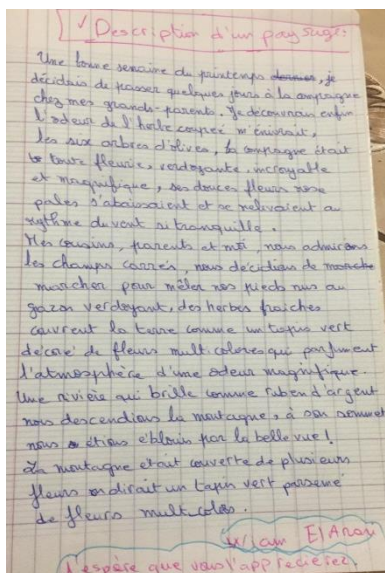 ✓ Description d'un paysage:
Une bonne semaine du printemps, je
décidais de passer quelques jours à la compagne
chez mes grands-parents. Je découvrais enfin
l'odeur de l'herbe coupée m'énivrait,
les six arbres d'olives, la compagne était
toute fleurie, verdoyante, incroyable
et magnifique, ses douces fleurs rose
pales s'abaissaient et se relivaient au
rythme du vent si tranquille.
Mes cousins, parents et moi, nous admirions
les champs carrés, nous décidions de
marcher pour mêler nos pieds nus au
gazon verdoyant, des herbes fraiches
couvrent la terre comme un tapis vert
décoré de fleurs multicolores qui parfument
l'atmosphère d'une odeur magnifique.
Une rivière qui brille comme ruben d'argent
nous descendions la montagne, à son sommet
nous étions éblouis par la belle vue!
La montagne était couverte de plusieurs
fleurs on dirait un tapis vert parsemé
de fleurs multicolos.
Wiam El
J'espère que vous l'appréciez.